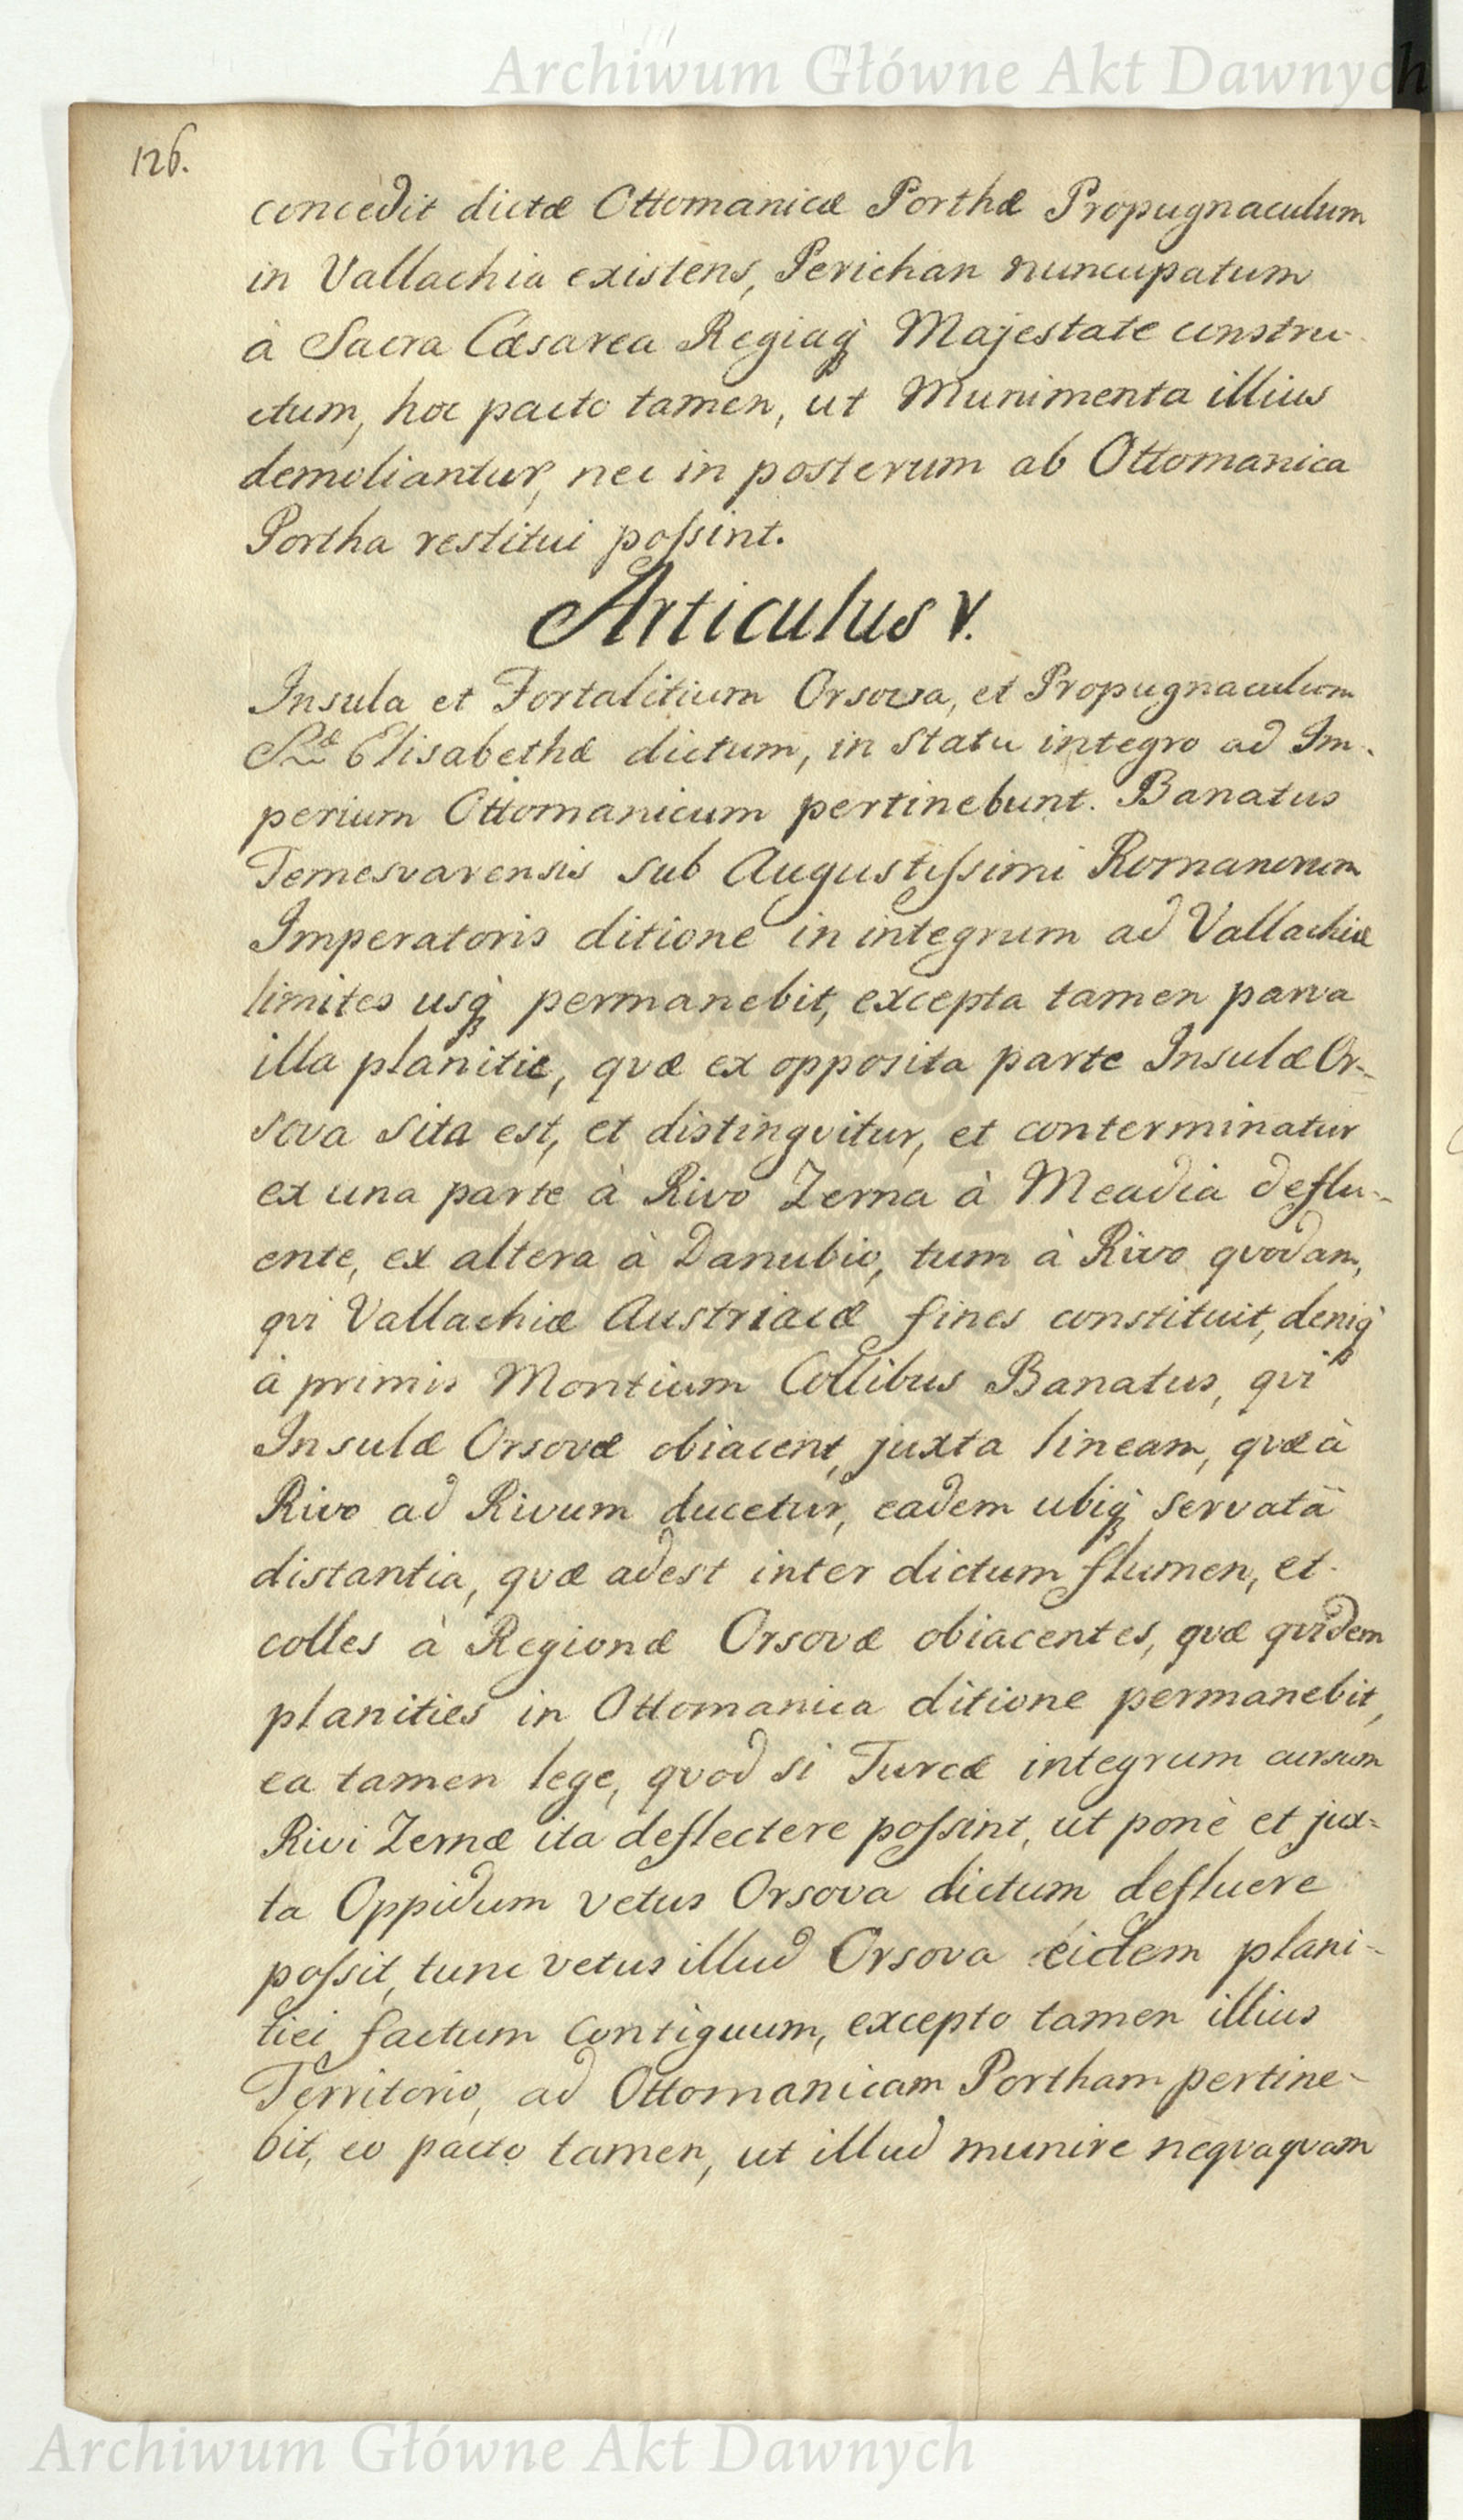 Archiwum Główne Akt Dawnych
126.
concedit dictæ Ottomanicæ Porthæ Propugnaculum
in Vallachia existens, Perichan nuncupatum
à Sacra Cæsarea Regiaq́ Majestate constru-
ctum, hoc pacto tamen, ut Munimenta illius
demoliantur, nec in posterum ab Ottomanica
Portha restitui poſsint.
Articulus V.
Insula et Fortalitium Orsova, et Propugnaculum
Stæ Elisabethæ dictum, in statu integro ad Im-
perium Ottomanicum pertinebunt. Banatus
Temesvarensis sub Augustiſsimi Romanorum
Imperatoris ditione in integrum ad Vallachiæ
limites usq́ permanebit, excepta tamen parva
illa planitie, quæ ex opposita parte Insulæ Or-
sova sita est, et distinguitur, et conterminatur
ex una parte à Rivo Zerna à Meadia deflu-
ente, ex altera à Danubio, tum à Rivo quodam,
qui Vallachiæ Austriacæ fines constituit, deniq́
à primis Montium Collibus Banatus, qui
Insulæ Orsovæ obiacent, juxta lineam, quæ à
Rivo ad Rivum ducetur, eadem ubiq́ servatâ
distantia, quæ adest inter dictum flumen, et
colles à Regionæ Orsovæ obiacentes, quæ quidem
planities in Ottomanica ditione permanebit,
ea tamen lege, quod si Turcæ integrum cursum
Rivi Zernæ ita deflectere poſsint, ut ponè et jux-
ta Oppidum vetus Orsova dictum defluere
poſsit, tunc vetus illud Orsova eidem plani-
tiei factum contiguum, excepto tamen illius
Territorio, ad Ottomanicam Portham pertine-
bit, eo pacto tamen, ut illud munire nequaquam
Archiwum Główne Akt Dawnych